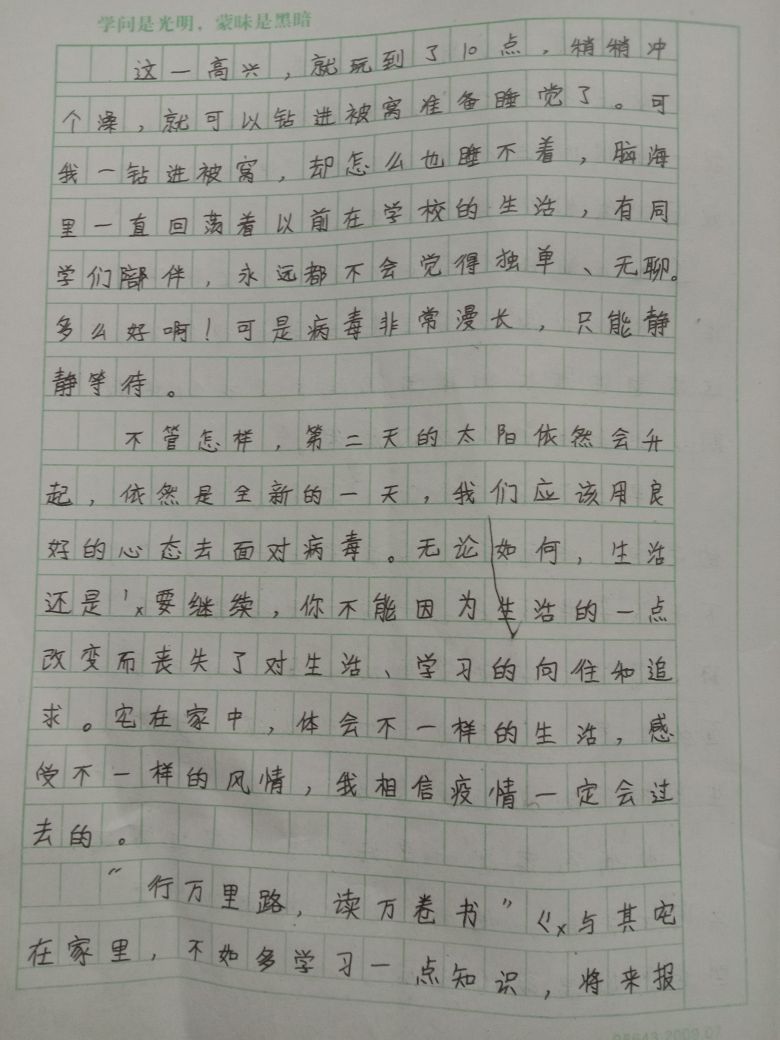 学问是光明，蒙昧是黑暗
这一高兴，就玩到了10点，稍稍冲
个澡，就可以钻进被窝准备睡觉了。可
我一钻进被窝，却怎么也睡不着，脑海
里一直回荡着以前在学校的生活，有同
学们陪伴，永远都不会觉得独单、无聊。
多么好啊！可是病毒非常漫长，只能静
静等待。
不管怎样，第二天的太阳依然会升
起，依然是全新的一天，我们应该用良
好的心态去面对病毒。无论如何，生活
还是要继续，你不能因为生活的一点
改变而丧失了对生活、学习的向往和追
求。宅在家中，体会不一样的生活，感
受不一样的风情，我相信疫情一定会过
去的。
“行万里路，读万卷书”与其宅
在家里，不如多学习一点知识，将来报